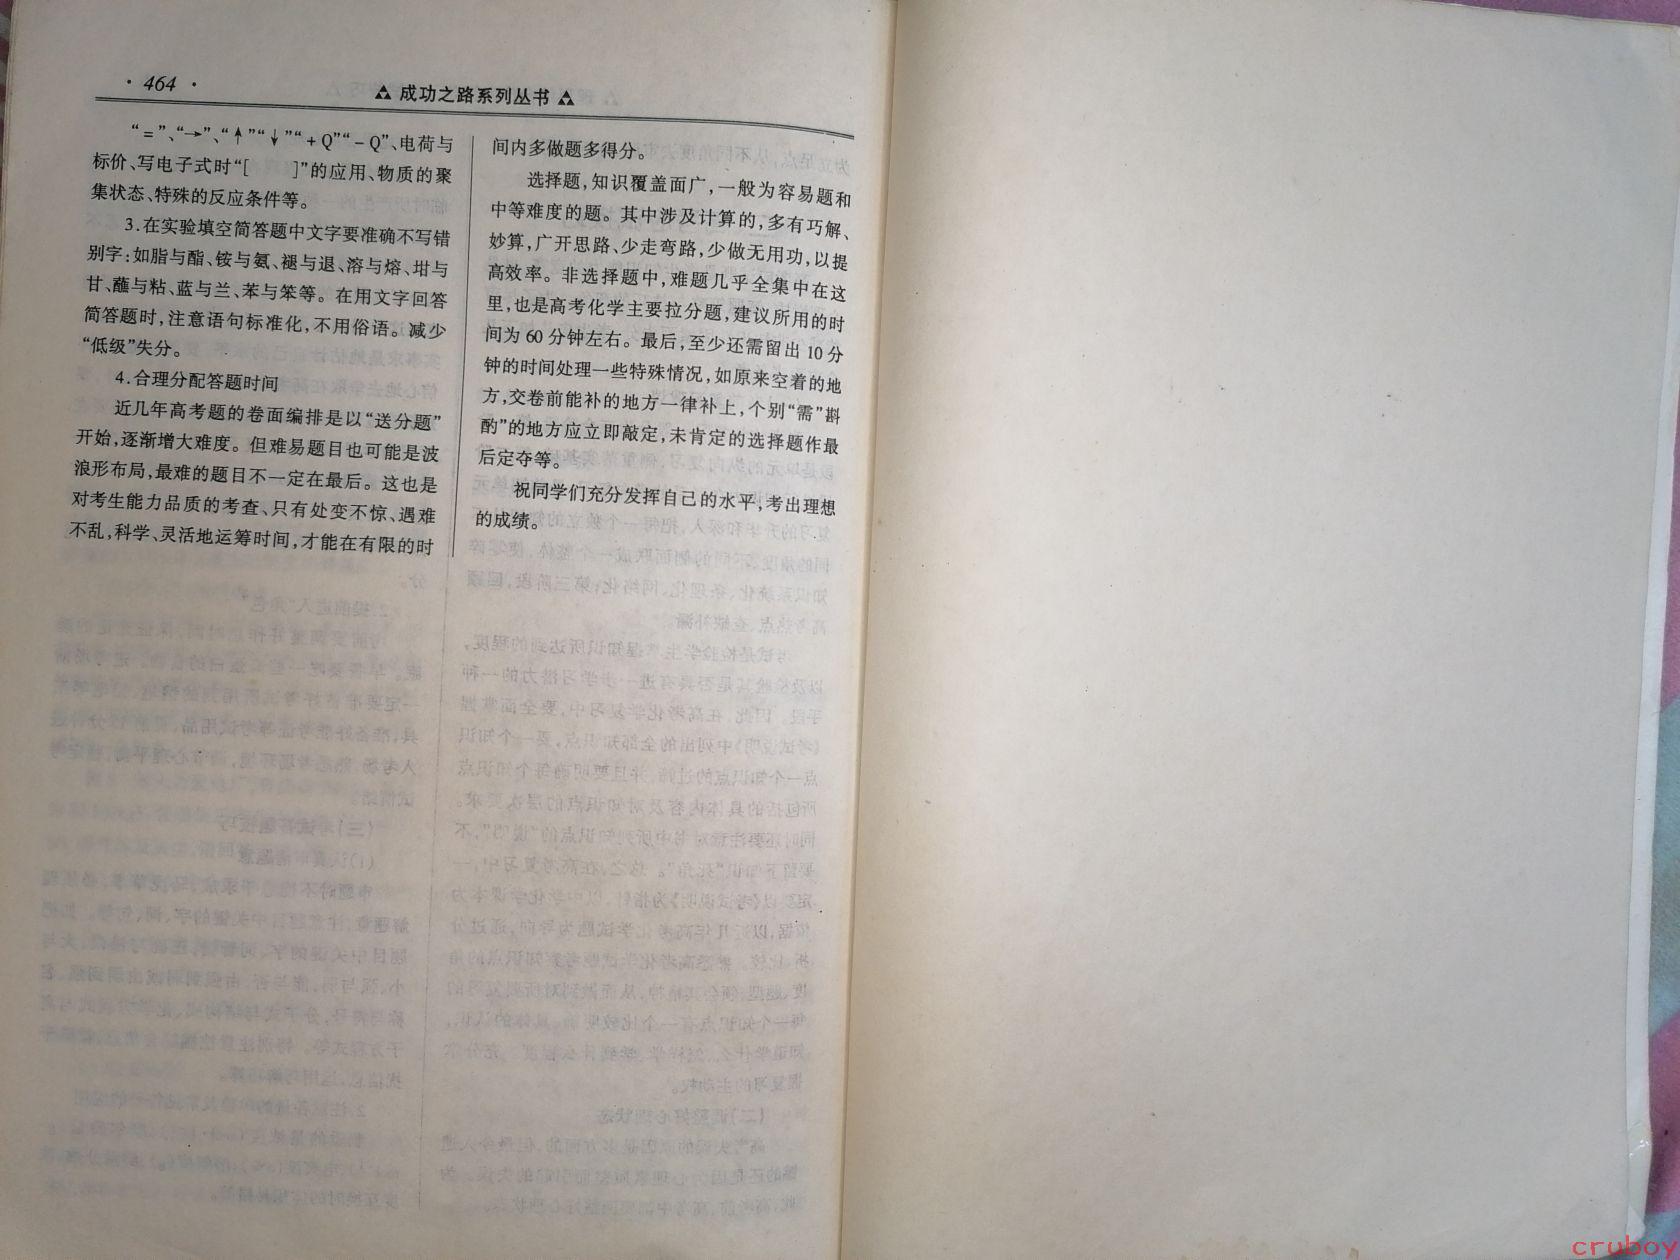 · 464 ·
成功之路系列丛书
“=”、“→”、“↑”“↓”“+Q”“-Q”、电荷与
标价、写电子式时“[　　]”的应用、物质的聚
集状态、特殊的反应条件等。
3.在实验填空简答题中文字要准确不写错
别字:如脂与酯、铵与氨、褪与退、溶与熔、坩与
甘、蘸与粘、蓝与兰、苯与笨等。在用文字回答
简答题时,注意语句标准化,不用俗语。减少
“低级”失分。
4.合理分配答题时间
近几年高考题的卷面编排是以“送分题”
开始,逐渐增大难度。但难易题目也可能是波
浪形布局,最难的题目不一定在最后。这也是
对考生能力品质的考查、只有处变不惊、遇难
不乱,科学、灵活地运筹时间,才能在有限的时
间内多做题多得分。
选择题,知识覆盖面广,一般为容易题和
中等难度的题。其中涉及计算的,多有巧解、
妙算,广开思路、少走弯路,少做无用功,以提
高效率。非选择题中,难题几乎全集中在这
里,也是高考化学主要拉分题,建议所用的时
间为60分钟左右。最后,至少还需留出10分
钟的时间处理一些特殊情况,如原来空着的地
方,交卷前能补的地方一律补上,个别“需”斟
酌”的地方应立即敲定,未肯定的选择题作最
后定夺等。
祝同学们充分发挥自己的水平,考出理想
的成绩。
cruboy